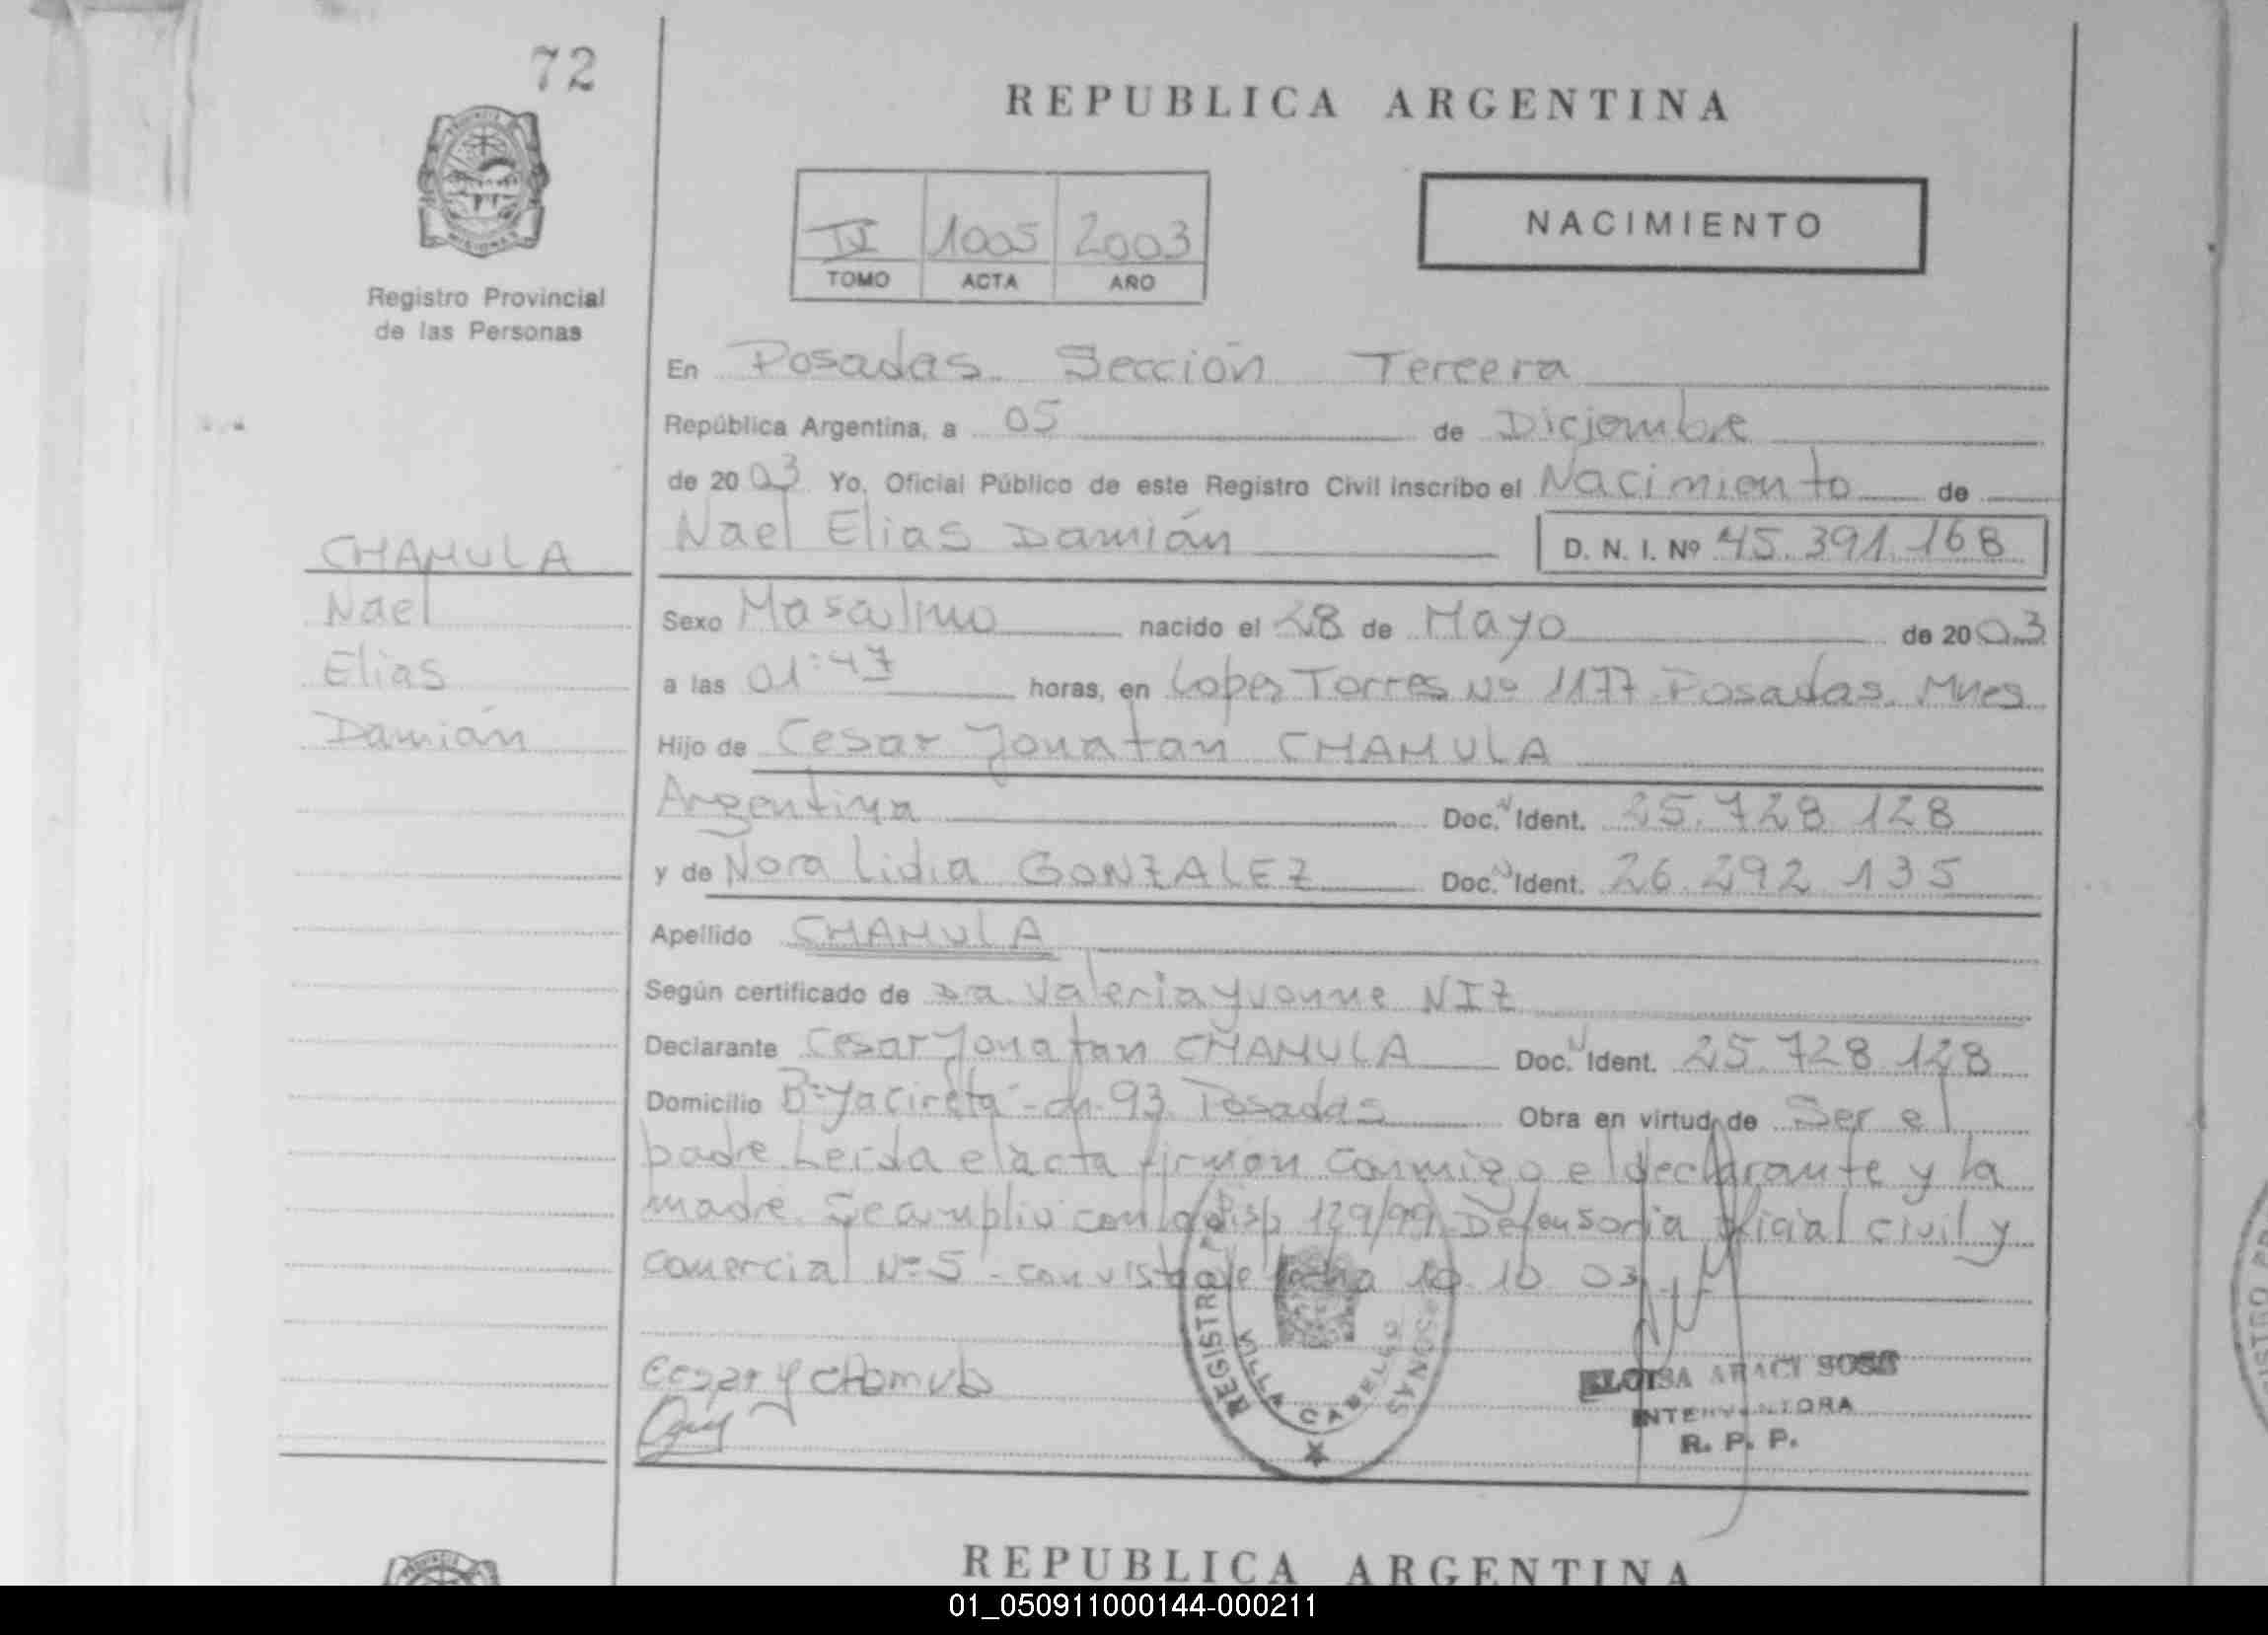 72
REPUBLICA ARGENTINA
Registro Provincial
de las Personas
II 1005 2003
TOMO ACTA AÑO
NACIMIENTO
En Posadas Sección Tercera
República Argentina, a 05 de Diciembre
de 2003 Yo, Oficial Público de este Registro Civil inscribo el Nacimiento de
CHAMULA
Nael
Elias
Damián
Nael Elias Damián D. N. I. Nº 45.391.168
Sexo Masculino nacido el 28 de Mayo de 2003
a las 01:47 horas, en Lopez Torres Nº 1177 Posadas. Mnes
Hijo de Cesar Jonatan CHAMULA
Argentina Doc. N Ident. 25.728.128
y de Nora Lidia GONZALEZ Doc. N Ident. 26.292.135
Apellido CHAMULA
Según certificado de Da Valeria Yvonne NIZ
Declarante Cesar Jonatan CHAMULA Doc. N Ident. 25.728.128
Domicilio Bº Yacireta - ch 93 Posadas Obra en virtud de Ser el
padre Leida el acta firman conmigo el declarante y la
madre. Se cumplio con la Disp 129/99. Defensoria oficial civil y
comercial Nº 5 - con vista de fecha 10 03
Cesar J Chamula
REGISTRO
VILLA CABELLO
ELOISA ARACI SOSA
INTERVENTORA
R. P. P.
REPUBLICA ARGENTINA
01_050911000144-000211